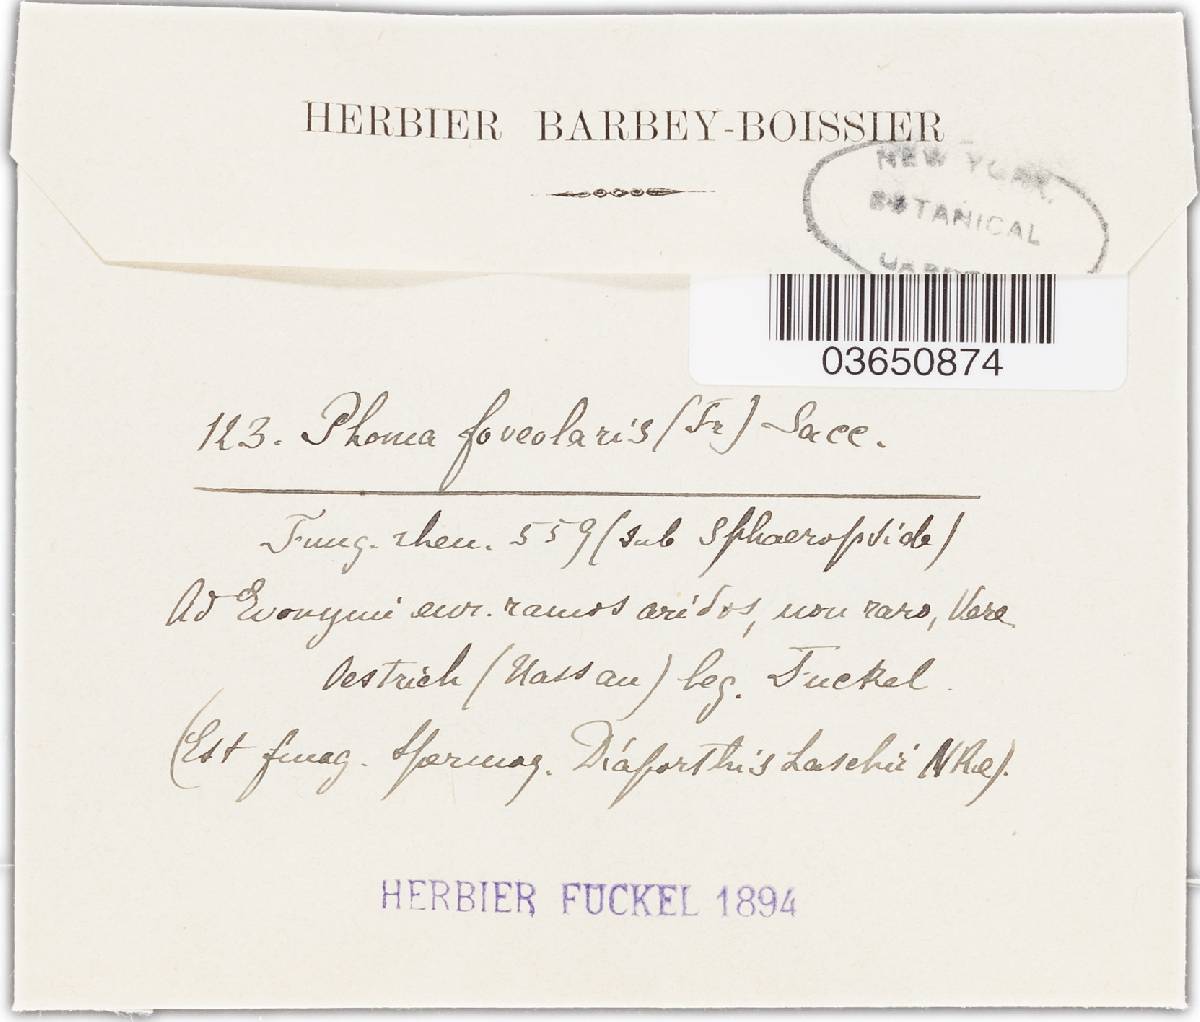 HERBIER BARBEY-BOISSIER
NEW YORK
BOTANICAL
03650874
123. Phoma foveolaris (Fr) Sacc.
Fung. rhen. 559 (sub Sphaeropside)
Ad Evonymi eur. ramos aridos, non raro, Vere
Oestrich (Nassau) leg. Fuckel.
(Est fung. spermog. Diaporthis Laschii Nke).
HERBIER FUCKEL 1894